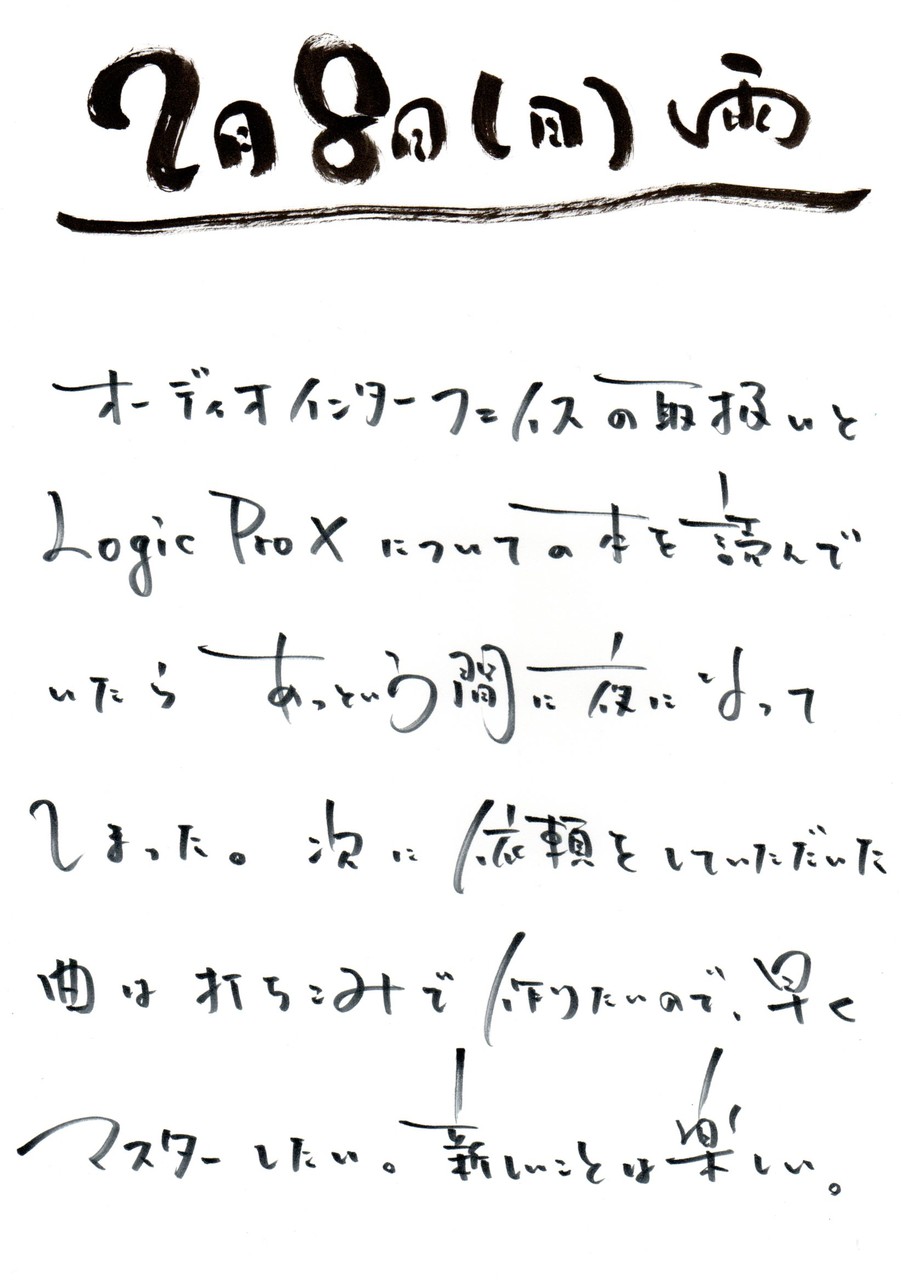 2月8日(月) 雨
オーディオインターフェイスの取扱いと
Logic Pro X についての本を読んで
いたら あっという間に夜になって
しまった。 次に 依頼をしていただいた
曲は 打ちこみで 作りたいので、早く
マスターしたい。新しいことは楽しい。